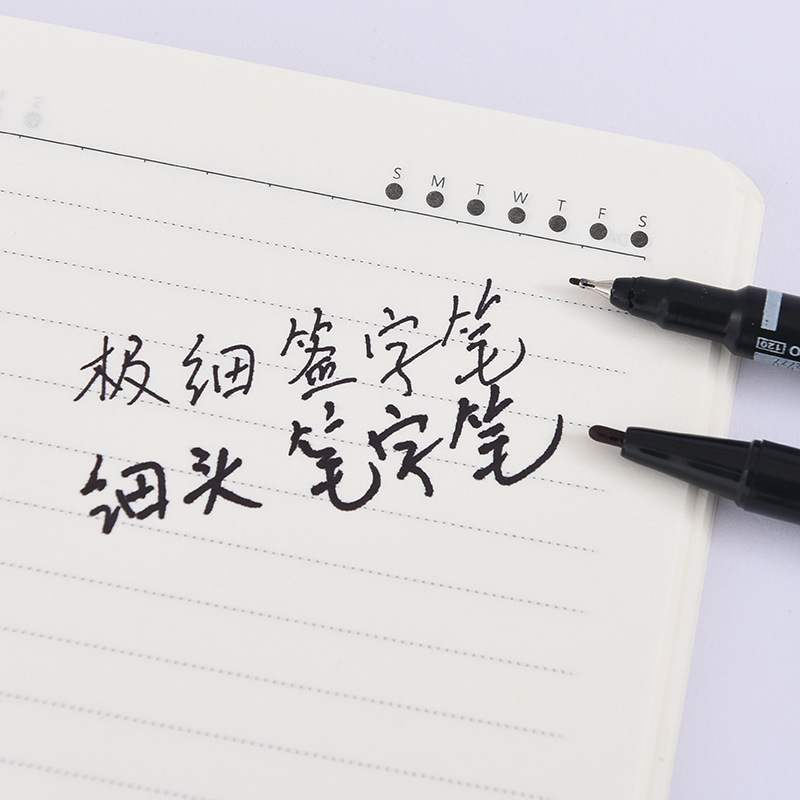 S M T W T F S
极细签字笔
细头笔字笔
120